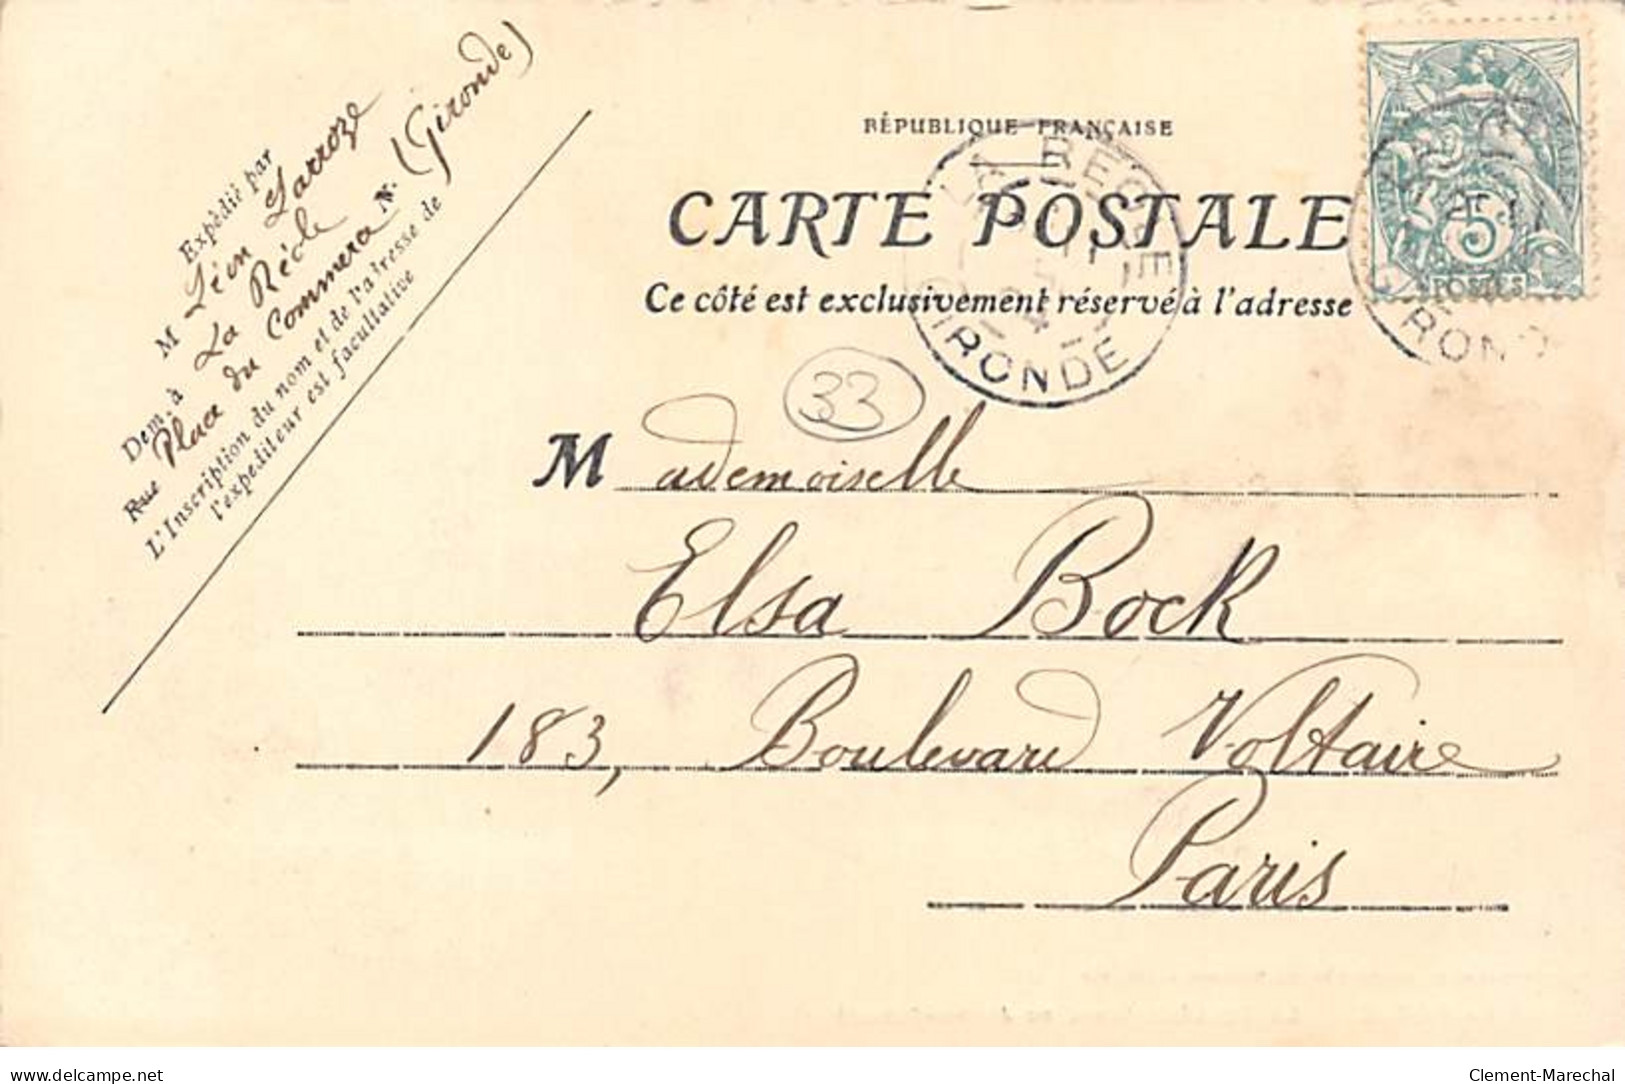 Expédié par
M Léon Larroze
Dem. à La Réole
Rue Place du Commerce N. (Gironde)
L'Inscription du nom et de l'adresse de
l'expéditeur est facultative
RÉPUBLIQUE FRANÇAISE
CARTE POSTALE
Ce côté est exclusivement réservé à l'adresse
LA REOLE
GIRONDE
5
POSTES
GIRONDE
33
Mademoiselle
Elsa Bock
183, Boulevard Voltaire
Paris
delcampe.net
Clement-Marechal